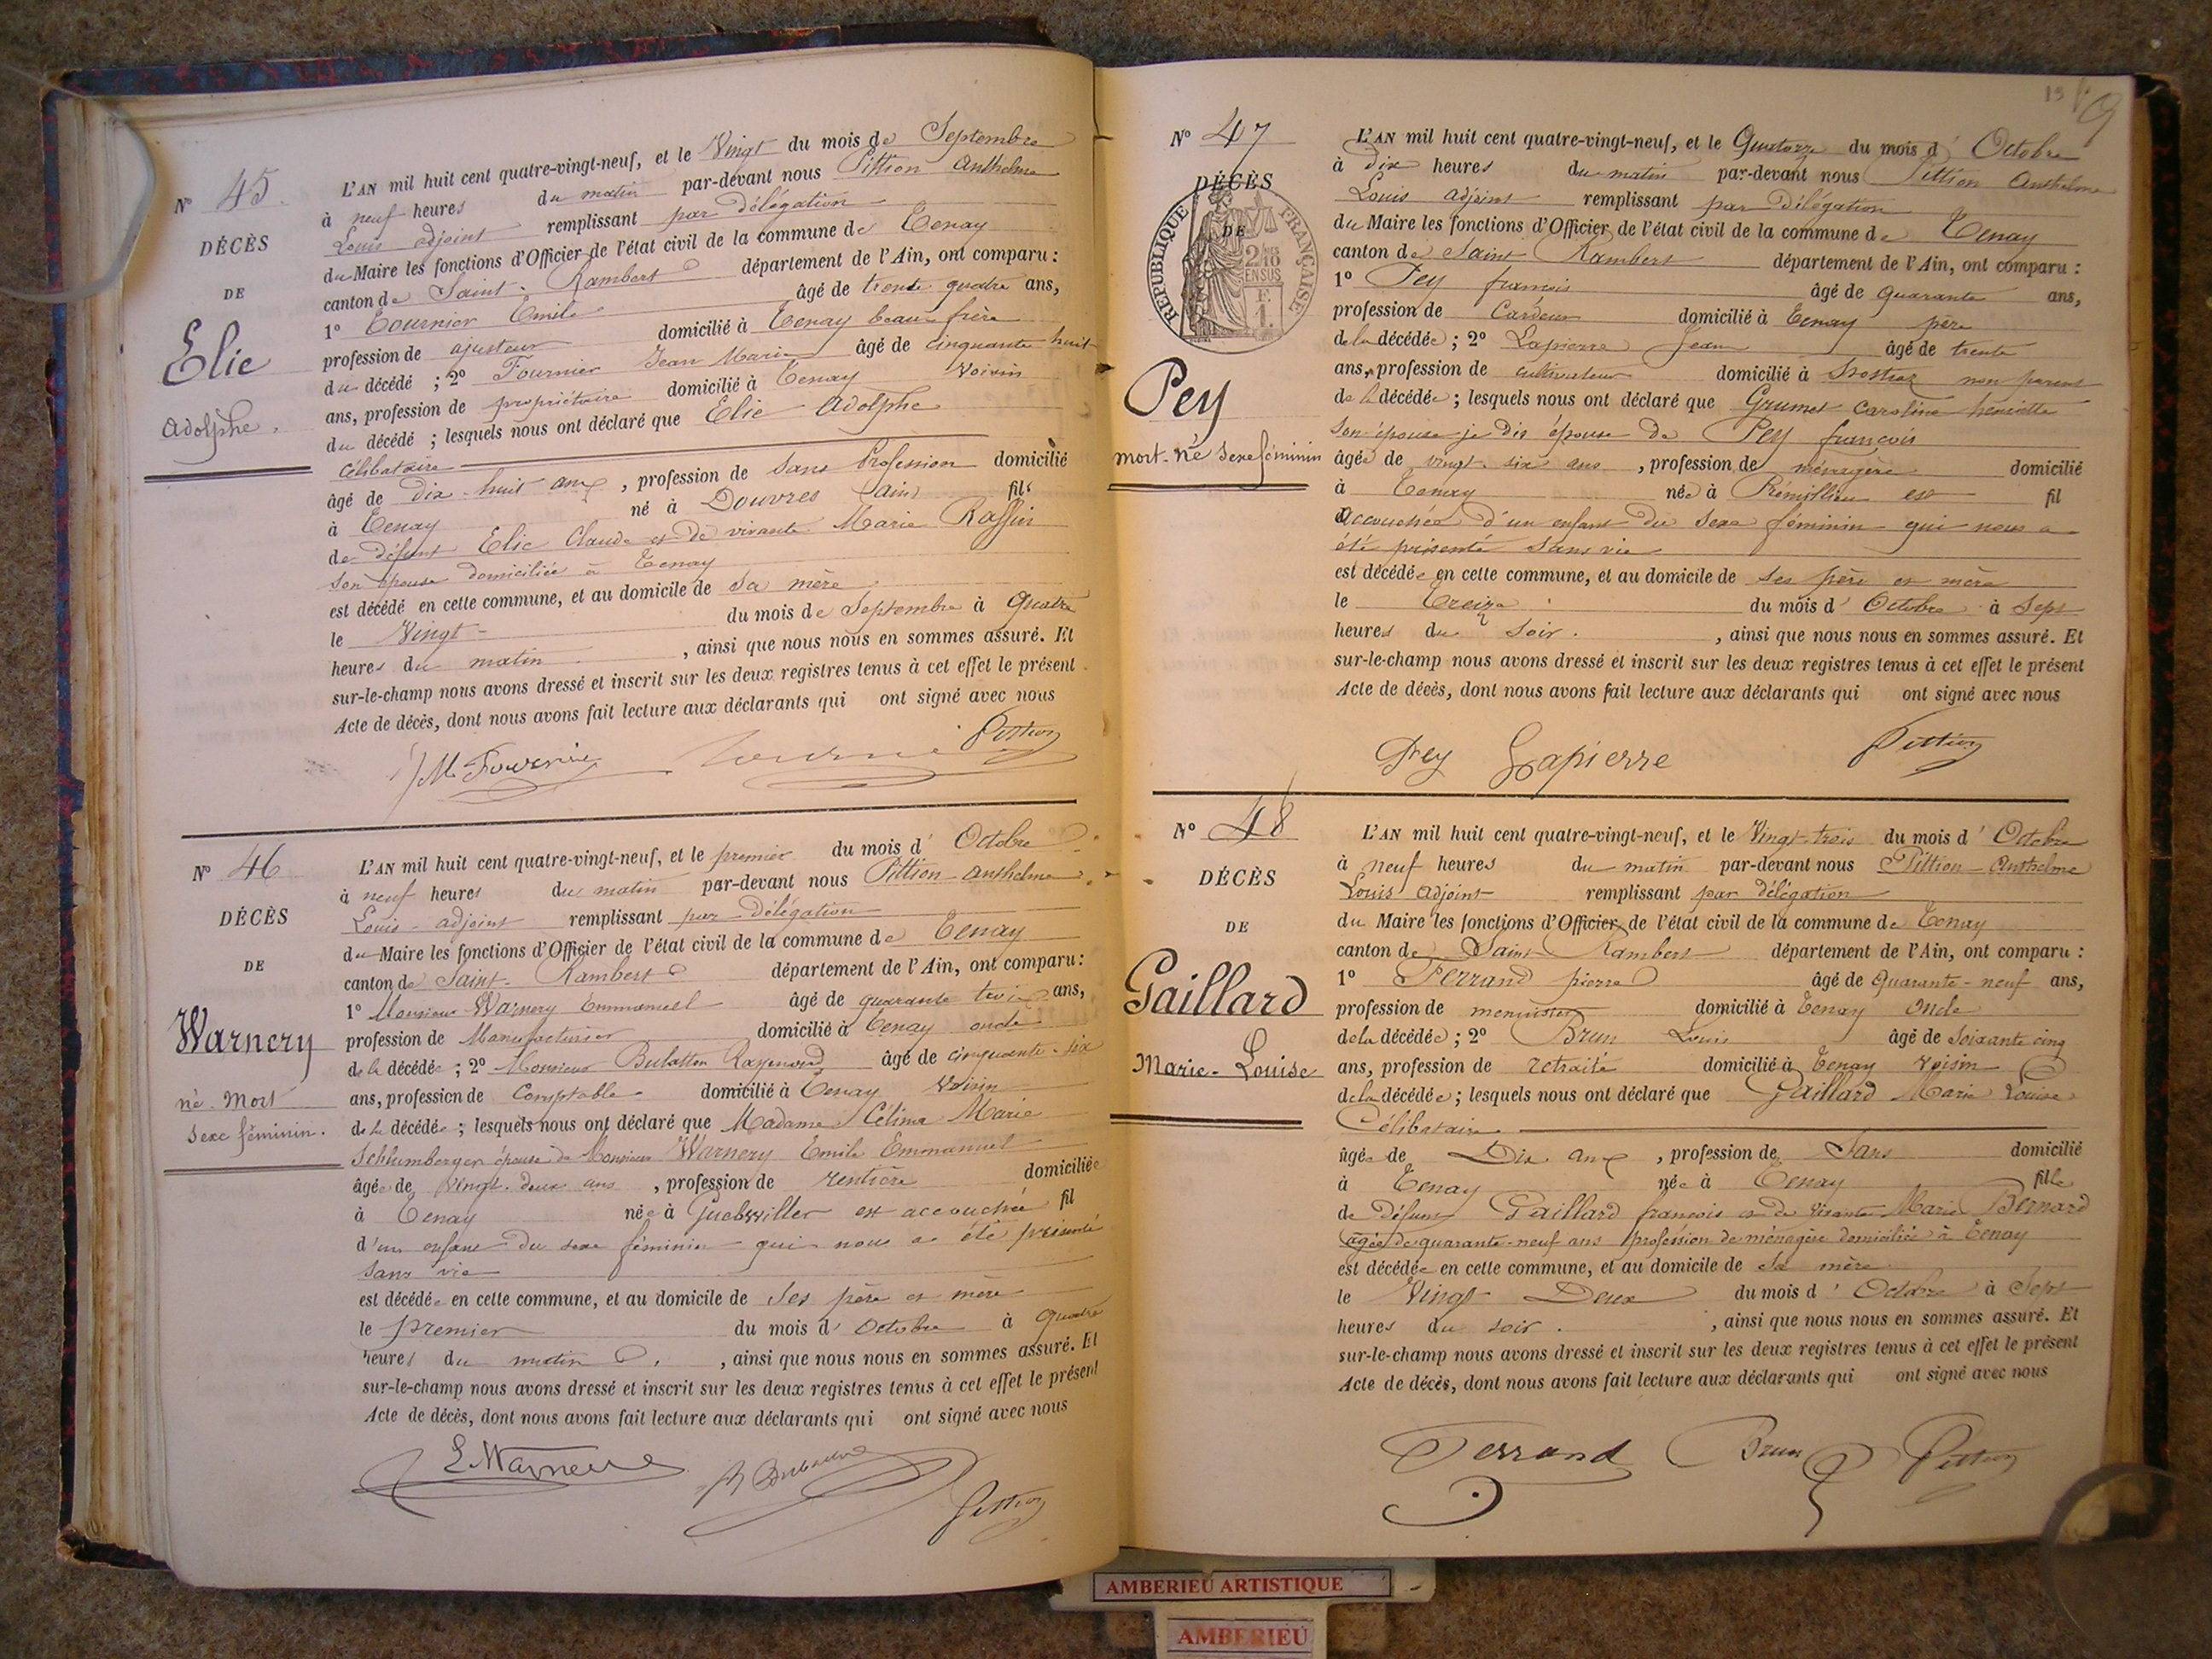 N° 45
DÉCÈS
DE
Elie
Adolphe.
L'AN mil huit cent quatre-vingt-neuf, et le Vingt du mois de Septembre
à neuf heures du matin par-devant nous Pittion Anthelme
Louis adjoint remplissant par délégation
du Maire les fonctions d'Officier de l'état civil de la commune de Tenay
canton de Saint-Rambert département de l'Ain, ont comparu :
1° Tournier Emile âgé de trente quatre ans,
profession de ajusteur domicilié à Tenay beau-frère
du décédé ; 2° Fournier Jean Marie âgé de cinquante huit
ans, profession de propriétaire domicilié à Tenay voisin
du décédé ; lesquels nous ont déclaré que Elie Adolphe
célibataire
âgé de dix-huit ans, profession de sans profession domicilié
à Tenay né à Douvres (ain) fils
de défunt Elie Claude et de vivante Marie Raffin
son épouse domiciliée à Tenay
est décédé en cette commune, et au domicile de sa mère
le Vingt du mois de Septembre à quatre
heures du matin, ainsi que nous nous en sommes assuré. Et
sur-le-champ nous avons dressé et inscrit sur les deux registres tenus à cet effet le présent
Acte de décès, dont nous avons fait lecture aux déclarants qui ont signé avec nous
JM Fournier Pittion
N° 46
DÉCÈS
DE
Warnery
né-mort
sexe féminin.
L'AN mil huit cent quatre-vingt-neuf, et le premier du mois d'Octobre
à neuf heures du matin par-devant nous Pittion Anthelme
Louis adjoint remplissant par délégation
du Maire les fonctions d'Officier de l'état civil de la commune de Tenay
canton de Saint-Rambert département de l'Ain, ont comparu :
1° Monsieur Warnery Emmanuel âgé de quarante trois ans,
profession de Manufacturier domicilié à Tenay oncle
de la décédée ; 2° Monsieur âgé de cinquante-six
ans, profession de Comptable domicilié à Tenay voisin
de la décédée ; lesquels nous ont déclaré que Madame Célina Marie
Schlumberger épouse de Monsieur Warnery Emile Emmanuel
âgée de vingt-deux ans, profession de rentière domiciliée
à Tenay née à Guebwiller est accouchée fil
d'un enfant du sexe féminin qui nous a été présenté
sans vie
est décédée en cette commune, et au domicile de ses père et mère
le premier du mois d'Octobre à quatre
heures du matin, ainsi que nous nous en sommes assuré. Et
sur-le-champ nous avons dressé et inscrit sur les deux registres tenus à cet effet le présent
Acte de décès, dont nous avons fait lecture aux déclarants qui ont signé avec nous
E. Warnery Pittion
N° 47
DÉCÈS
DE
RÉPUBLIQUE FRANÇAISE
Pey
mort-né sexe féminin
L'AN mil huit cent quatre-vingt-neuf, et le Quatorze du mois d'Octobre
à dix heures du matin par-devant nous Pittion Anthelme
Louis adjoint remplissant par délégation
du Maire les fonctions d'Officier de l'état civil de la commune de Tenay
canton de Saint Rambert département de l'Ain, ont comparu :
1° Pey françois âgé de quarante ans,
profession de Cardeur domicilié à Tenay père
de la décédée ; 2° Lapierre Jean âgé de trente
ans, profession de cultivateur domicilié à non parent
de la décédée ; lesquels nous ont déclaré que Grumet Caroline henriette
son épouse je dis épouse de Pey françois
âgée de vingt-six ans, profession de ménagère domicilié
à Tenay née à Prémillieu est fil
accouchée d'un enfant du sexe féminin qui nous a
été présenté sans vie
est décédée en cette commune, et au domicile de ses père et mère
le Treize du mois d'Octobre à sept
heures du soir., ainsi que nous nous en sommes assuré. Et
sur-le-champ nous avons dressé et inscrit sur les deux registres tenus à cet effet le présent
Acte de décès, dont nous avons fait lecture aux déclarants qui ont signé avec nous
Pey Lapierre Pittion
N° 48
DÉCÈS
DE
Gaillard
Marie-Louise
L'AN mil huit cent quatre-vingt-neuf, et le Vingt-trois du mois d'Octobre
à neuf heures du matin par-devant nous Pittion Anthelme
Louis adjoint remplissant par délégation
du Maire les fonctions d'Officier de l'état civil de la commune de Tenay
canton de Saint Rambert département de l'Ain, ont comparu :
1° Ferrand pierre âgé de quarante-neuf ans,
profession de menuisier domicilié à Tenay oncle
de la décédée ; 2° Brun Louis âgé de soixante cinq
ans, profession de retraité domicilié à Tenay voisin
de la décédée ; lesquels nous ont déclaré que Gaillard Marie Louise
Célibataire
âgée de Dix ans, profession de Sans domicilié
à Tenay née à Tenay fille
de défunt Gaillard françois et de vivante Marie Bernard
âgée de quarante-neuf ans profession de ménagère domiciliée à Tenay
est décédée en cette commune, et au domicile de sa mère
le Vingt Deux du mois d'Octobre à Sept
heures du soir., ainsi que nous nous en sommes assuré. Et
sur-le-champ nous avons dressé et inscrit sur les deux registres tenus à cet effet le présent
Acte de décès, dont nous avons fait lecture aux déclarants qui ont signé avec nous
Ferrand Brun Pittion
AMBERIEU ARTISTIQUE
AMBERIEU